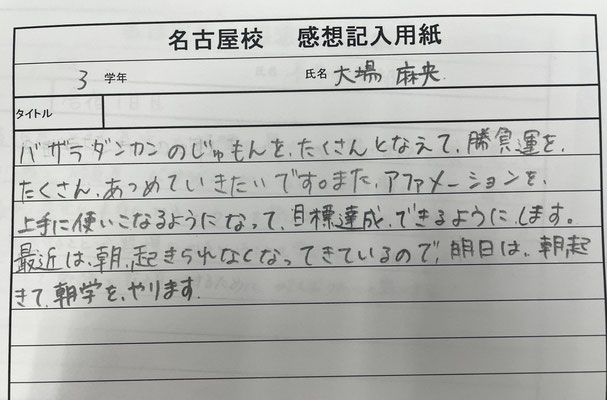 名古屋校 感想記入用紙
3 学年 氏名 大場 麻央
タイトル
バザラダンカンのじゅもんを、たくさんとなえて、勝負運を、
たくさん、あつめていきたいです。また、アファメーションを、
上手に使いこなるようになって、目標達成、できるように、します。
最近は、朝、起きられなくなってきているので、明日は、朝起
きて、朝学を、やります。